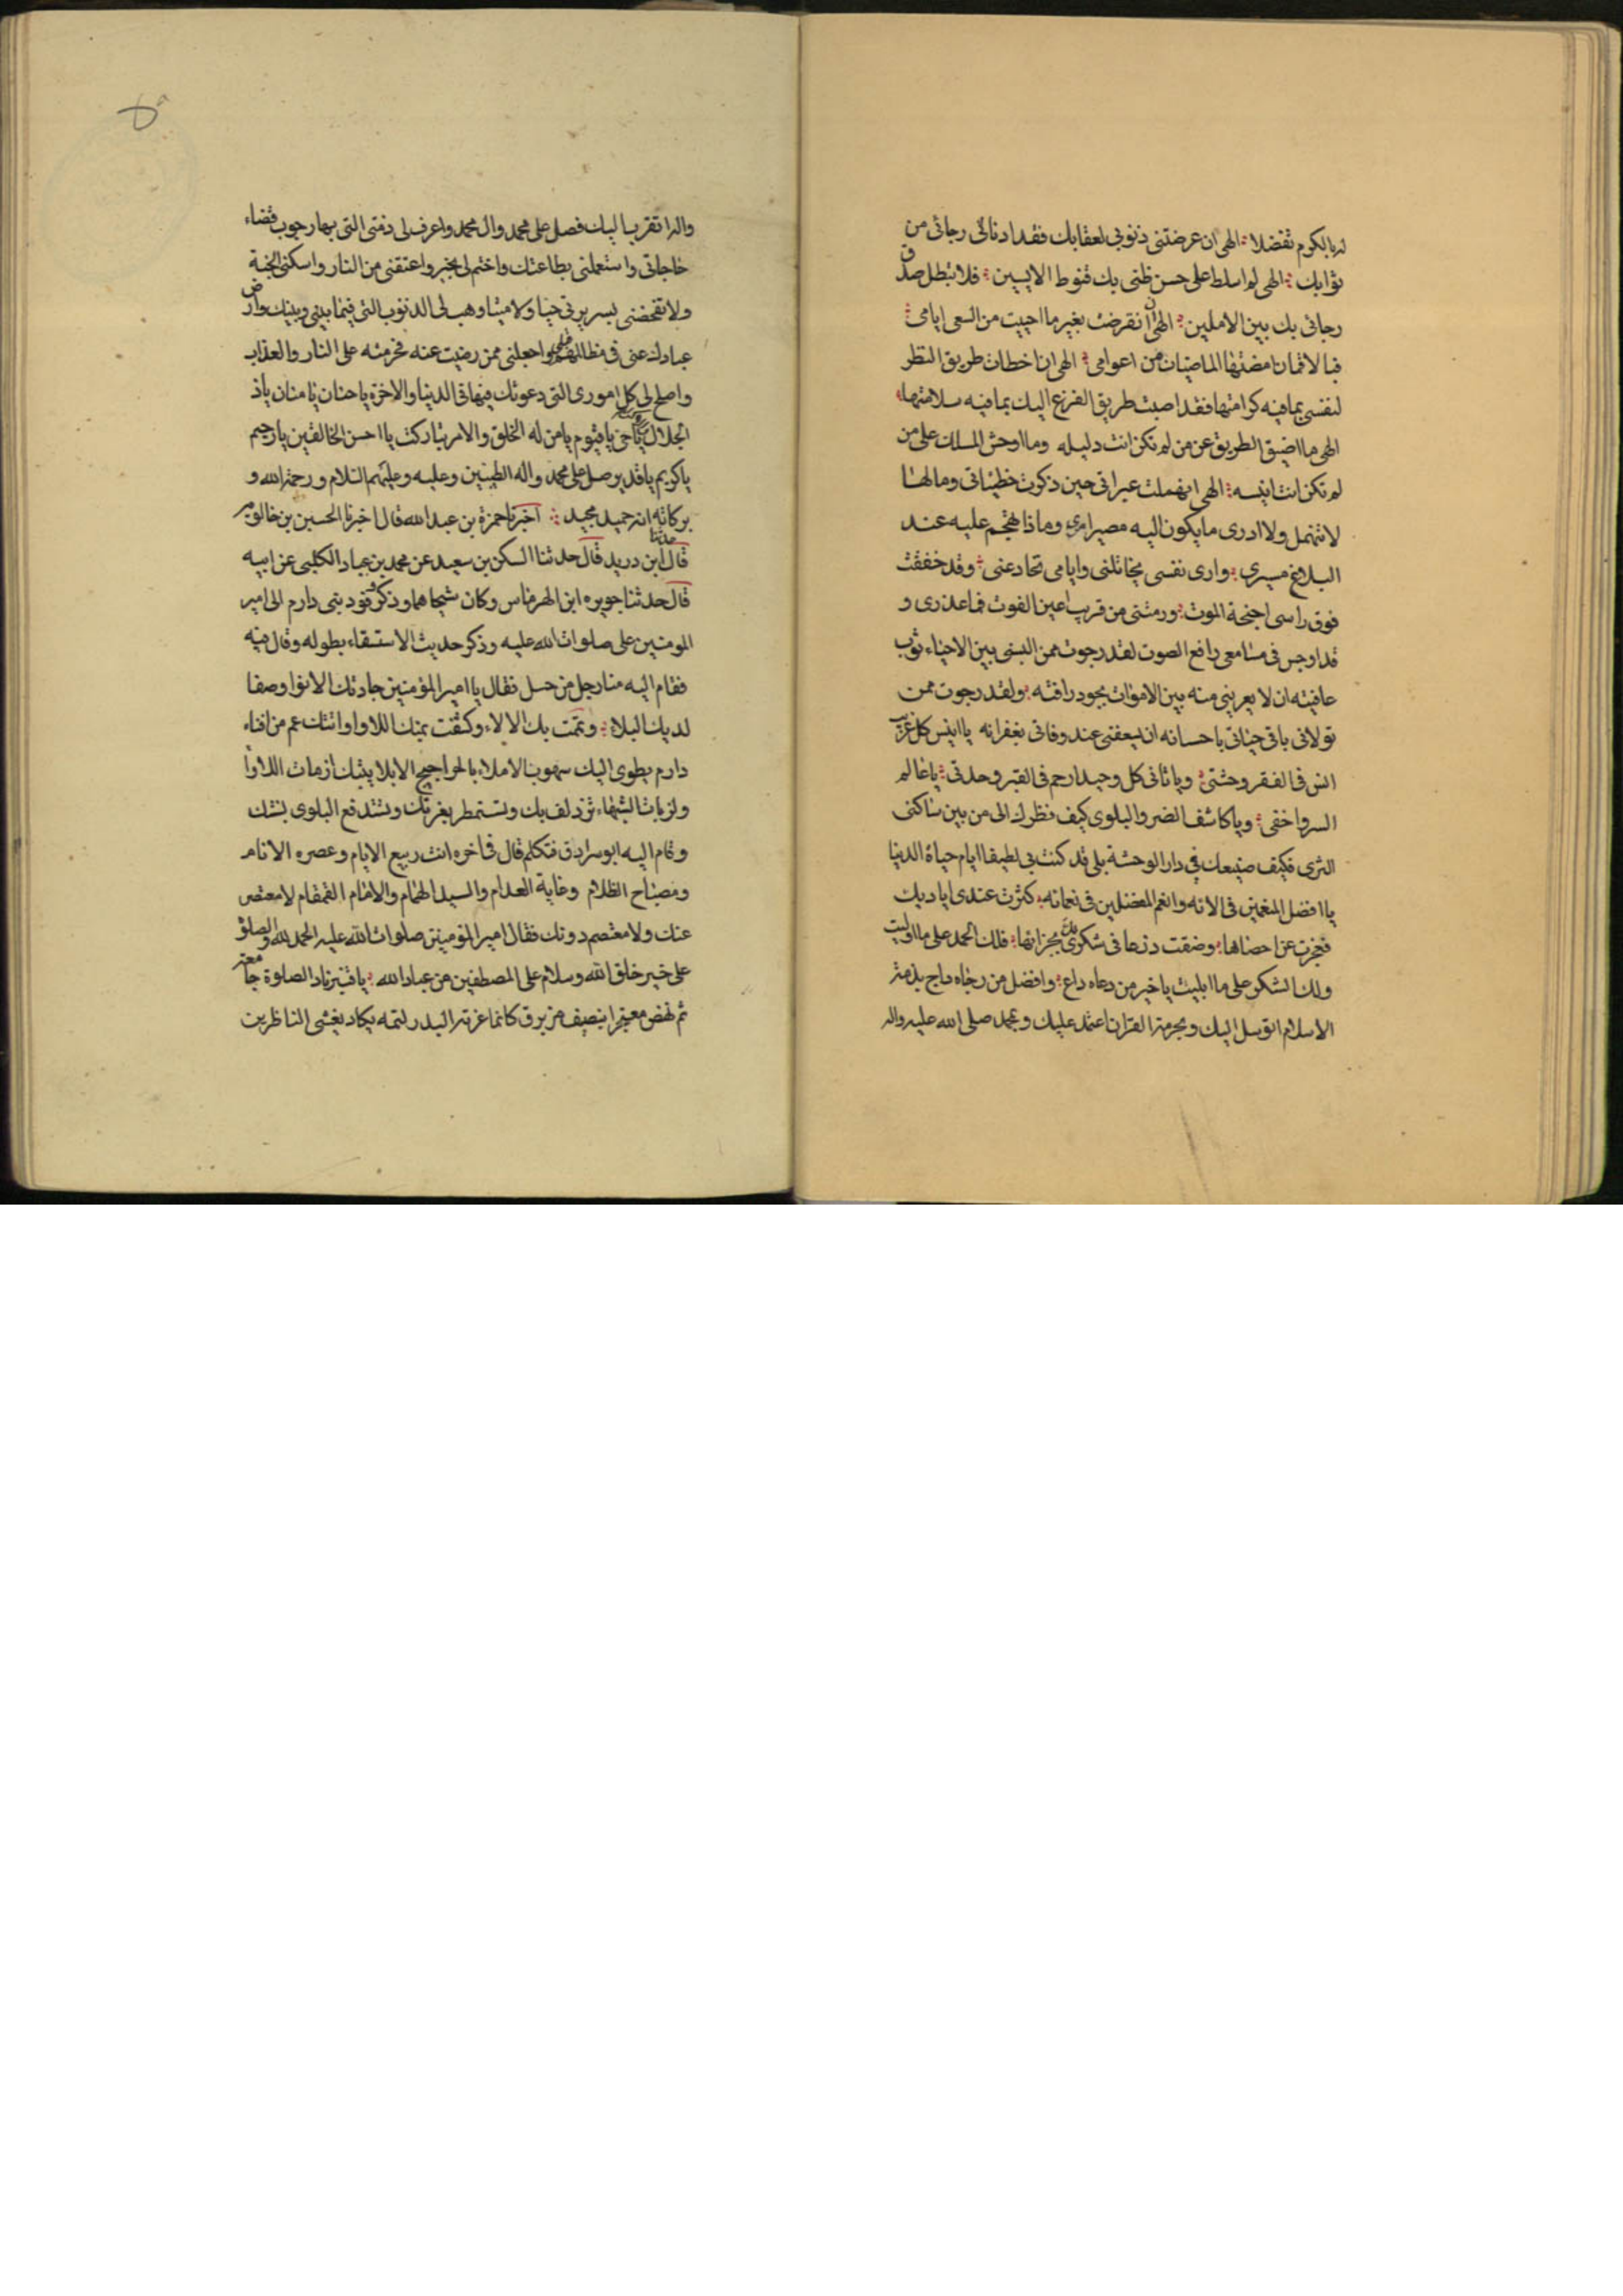 له بالكرم تفضلا الهى ان عرضتنى ذنوبى لعقابك فقد ادنانى رجائى من
ثوابك الهى لم اسلط على حسن ظنى بك قنوط الايسين فلا تبطل صدق
رجائى بك بين الاملين الهى ان انقرضت بغير ما احببت من السعى ايامى
فبالايمان امضتها الماضيات من اعوامى الهى ان اخطات طريق النظر
لنفسى بما فيه كرامتها فقد اصبت طريق الفزع اليك بما فيه سلامتها
الهى ما اضيق الطريق عن من لم تكن انت دليله وما اوحش المسلك على من
لم تكن انت انيسه الهى انهملت عبراتى حين ذكرت خطيئاتى ومالها
لا تنهمل ولا ادرى ما يكون اليه مصيرى وماذا يهجم عليه عند
البلاغ مسيرى وارى نفسى تخاتلنى وايامى تخادعنى وقد خفقت
فوق راسى اجنحة الموت ورمتنى من قريب اعين الفوت فما عذرى و
قد اوجس فى مسامعى رافع الصوت لقد رجوت ممن البسنى بين الاحياء ثوب
عافيته ان لا يعرينى منه بين الاموات بجود رافته ولقد رجوت ممن
تولانى باقى حياتى باحسانه ان يسعفنى عند وفاتى بغفرانه يا انيس كل غريب
انس فى القبر وحشتى ويا ثانى كل وحيد ارحم فى القبر وحدتى يا عالم
السر واخفى ويا كاشف الضر والبلوى كيف نظرك الى من بين ساكنى
الثرى فكيف صنيعك فى دار الوحشة بلى قد كنت بى لطيفا ايام حياة الدنيا
يا افضل المنعمين فى الائه وانعم المفضلين فى نعمائه كثرت عندى اياديك
فعجزت عن احصاها وضقت ذرعا فى شكرى لك بجزائها فلك الحمد على ما اوليت
ولك الشكر على ما ابليت يا خير من دعاه داع وافضل من رجاه راج بذمة
الاسلام اتوسل اليك وبحرمة القران اعتمد عليك وبمحمد صلى الله عليه واله
واله اتقرب اليك فصل على محمد وال محمد واعرف لى ذمتى التى بها رجوت قضاء
حاجاتى واستعملنى بطاعتك واختم لى بخير واعتقنى من النار واسكنى الجنة
ولا تفضحنى بسريرتى حيا وميتا وهب لى الذنوب التى فيما بينى وبينك وارض
عبادك عنى فى مظالمهم قبلى واجعلنى ممن رضيت عنه فحرمته على النار والعذاب
واصلح لى كل امورى التى دعوتك فيها فى الدنيا والاخرة يا حنان يا منان يا ذا
الجلال يا حى يا قيوم يا من له الخلق والامر تباركت يا احسن الخالقين يا رحيم
يا كريم يا قدير صل على محمد واله الطيبين وعليه وعليهم السلام ورحمة الله و
بركاته انه حميد مجيد اخبرنا حمزة بن عبد الله قال اخبرنا الحسين بن خالويه
قال حدثنا ابن دريد قال حدثنا السكن بن سعيد عن محمد بن عباد الكلبى عن ابيه
قال حدثنا جويره ابن الهرماس وكان وذكر وفود بنى دارم الى امير
المومنين على صلوات الله عليه وذكر حديث الاستسقاء بطوله وقال فيه
فقام اليه منا رجل من حسل فقال يا امير المؤمنين جادتك الانوا وصفا
لديك البلاء وتمت بك الالاء وكشفت بيمنك اللاوا واتتك عم من افناء
دارم يطوى اليك سهوب الاملاء بالحراجيج الابلا يبثك ازمات اللاوا
ولزبات الشهباء تزدلف بك وتستمطر بغرتك وتستدفع البلوى بسنتك
وقام اليه ابو سرادق فتكلم قال فى اخره انت ربيع الايام وعصره الانام
ومصباح الظلام وغاية العدام والسيد الهمام والامام القمقام لا معتصر
عنك ولا معتصم دونك فقال امير المؤمنين صلوات الله عليه الحمد لله والصلوة
على خير خلق الله وسلام على المصطفين من عباد الله يا قنبر ناد الصلوة جامعة
ثم نهض معتجرا بنصيف من برق كانما غرته البدر لتمه يكاد يغشى الناظرين